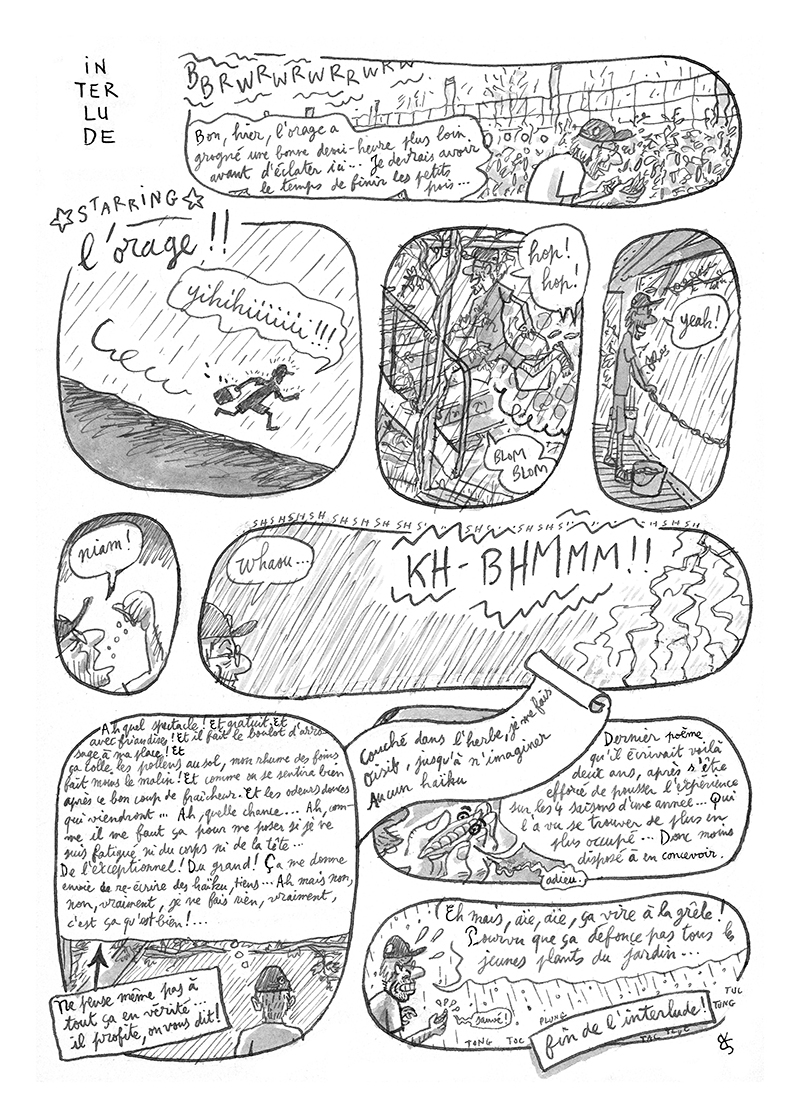 iN
TER
LU
DE
BBRWRWRWRRWRW
Bon, hier, l'orage a
grogné une bonne demi-heure plus loin
avant d'éclater ici... Je devrais avoir
le temps de finir les petits
pois...
STARRING
l'orage !!
yihihiiiiiii !!!
hop!
hop!
BLOM
BLOM
yeah!
niam!
SHSHSHSHSHSHSHSHSH
whaou...
KH-BHMMM!!
Ah quel spectacle! Et gratuit, Et
avec friandises! Et il fait le boulot d'arro
sage à ma place! Et
ça colle les pollens au sol, mon rhume des foins
fait moins le malin! Et comme on se sentira bien
après ce bon coup de fraîcheur. Et les odeurs douces
qui viendront... Ah, quelle chance... Ah, com-
me il me faut ça pour me poser si je ne
suis fatigué ni du corps ni de la tête...
De l'exceptionnel! Du grand! Ça me donne
envie de ré-écrire des haïku, tiens... Ah mais non,
non, vraiment, je ne fais rien, vraiment,
c'est ça qu'est bien!...
ne pense même pas à
tout ça en vérité...
il profite, on vous dit!
Couché dans l'herbe, je me fais
Oisif, jusqu'à n'imaginer
Aucun haïku
Dernier poème
qu'il écrivait voilà
deux ans, après s'être
efforcé de pousser l'expérience
sur les 4 saisons d'une année... Qui
l'a vu se trouver de plus en
plus occupé... Donc moins
disposé à en concevoir.
adieu.
Eh mais, aïe, aïe, ça vire à la grêle!
Pourvu que ça défonce pas tous les
jeunes plants du jardin...
sauvé!
TONG TOC PLONG TAC TLUC TUC TONG
fin de l'interlude!